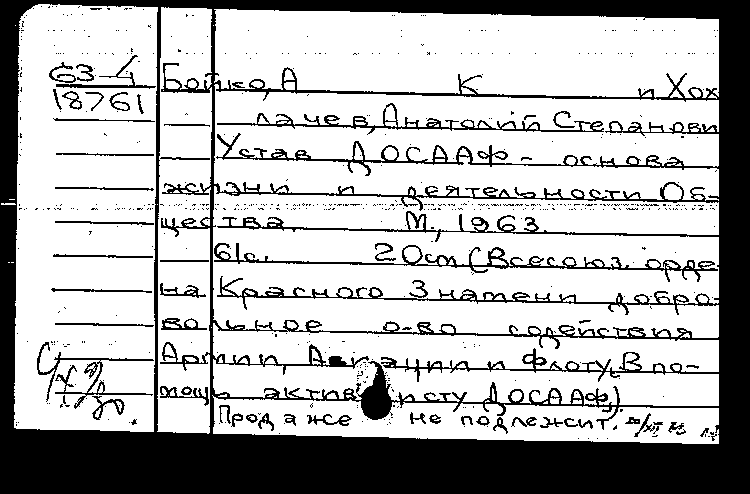 63-4 Бойко, А К и Хох
18761
лачев, Анатолий Степанови
Устав ДОСААФ - основа
жизни и деятельности Об-
щества. М., 1963.
61с. 20см (Всесоюз. орде
на Красного Знамени добро-
вольное о-во содействия
Армии, Авиации и флоту. В по-
мощь активисту ДОСААФ).
Продаже не подлежит.